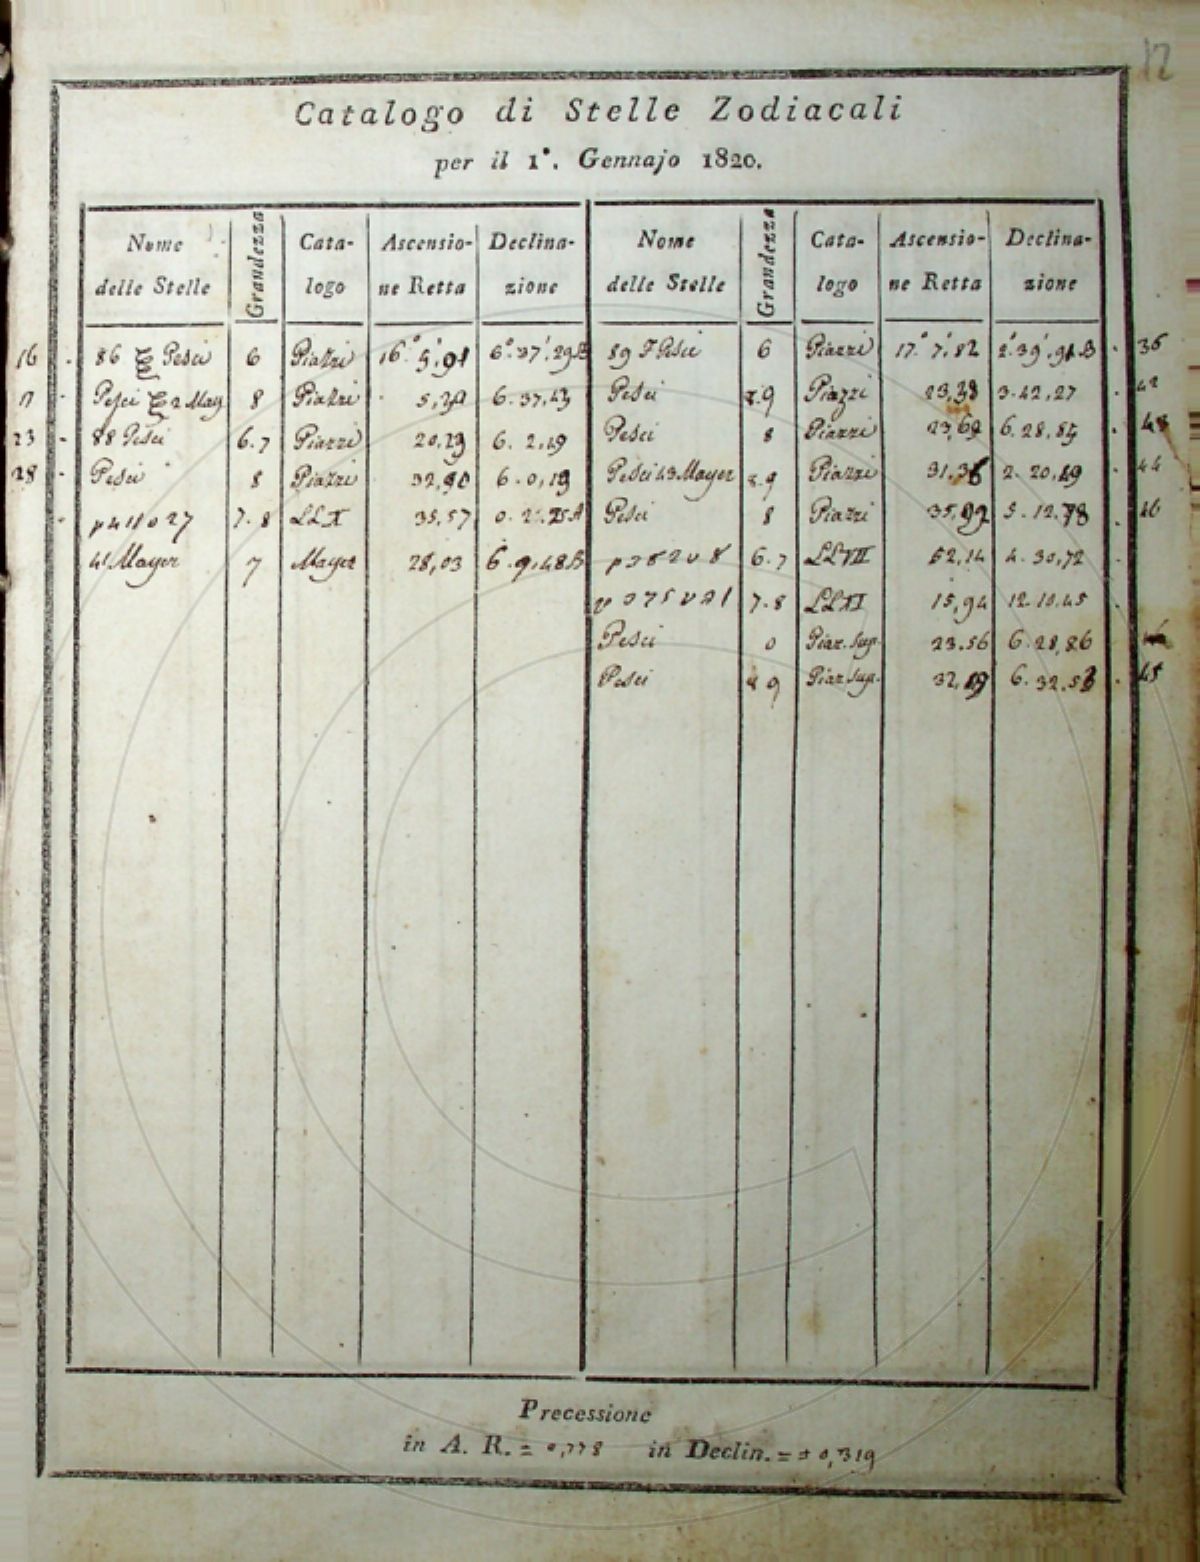 12
Catalogo di Stelle Zodiacali
per il 1°. Gennajo 1820.
Nome delle Stelle Grandezza Cata-logo Ascensio-ne Retta Declina-zione Nome delle Stelle Grandezza Cata-logo Ascensio-ne Retta Declina-zione
16 86 ξ Pesci 6 Piazzi 16° 5',91 6° 37',29 B 89 f Pesci 6 Piazzi 17° 7',82 2° 39',91 B 36
17 Pesci ξ 2 May 8 Piazzi 6. 37,43 Pesci 8.9 Piazzi 3. 42,27 42
23 88 Pesci 6.7 Piazzi 20,29 6. 2,49 Pesci 8 Piazzi 23,69 6. 28,85
28 Pesci 8 Piazzi 32,90 6. 0,19 Pesci 43 Mayer 8.9 Piazzi 31,36 2. 20,49 44
7.8 LL X 35,57 Pesci 8 Piazzi 35,99 5. 12,78 46
41 Mayer 7 Mayer 28,03 6. 9,48 B 6.7 LL VII 52,14 4. 30,72
7.8 15,94 12. 10,45
Pesci Piaz. Sup. 23,56 6. 28,86
Pesci 9 Piaz. Sup. 6. 32,53 45
Precessione
in A. R. = 0,778 in Declin. = ± 0,319